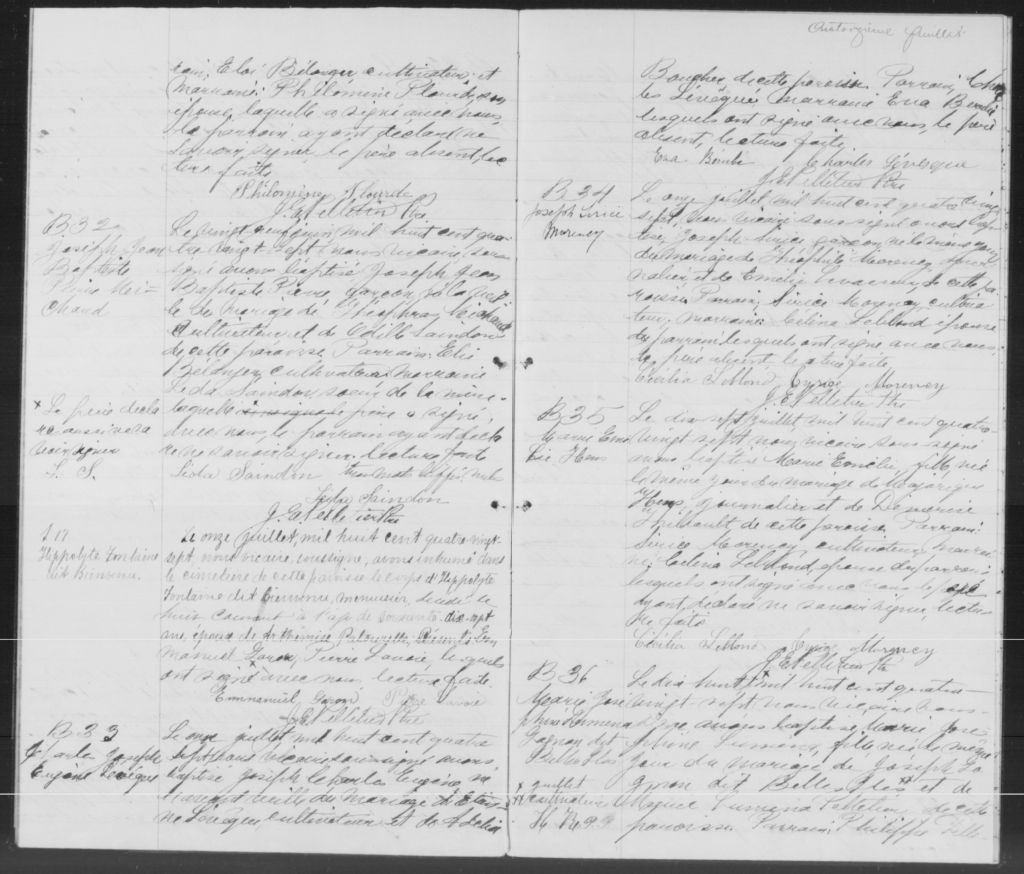 rain, Eloi Bélanger cultivateur et
Marraine Philomène Plourde, son
épouse, laquelle a signé avec nous,
le parrain ayant déclaré ne
savoir signer le père absent lec
ture faite
Philomène Plourde
J. E. Pelletier Ptre
B 32
Joseph Jean
Baptiste
Pierre Mi-
chaud
Le vingt juin, mil huit cent qua-
tre vingt sept nous vicaire, sous-
signé avons baptisé Joseph Jean
Baptiste Pierre, garçon,
le du mariage de Théophile Michaud
cultivateur et de Odille Saindon
de cette paroisse Parrain Elie
Bélanger cultivateur marraine
Leda Saindon soeur de la mère
laquelle le père a signé
avec nous, le parrain ayant décla
ré ne savoir signer. Lecture faite
Léda Saindon trois mots biffés nuls
Léda Saindon
J. E. Pelletier Ptre
x Le père décla
re aussi ne sa
voir signer
L. S.
S 17
Hippolyte Fontaine
dit Bienvenu.
Le onze juillet, mil huit cent quatre vingt
sept, nous vicaire, soussigné, avons inhumé dans
le cimetière de cette paroisse le corps d'Hippolyte
Fontaine dit Bienvenu, menuisier, décédé le
huit courant à l'âge de soixante-dix-sept
ans, époux de Présents Em
manuel Garon, Pierre Lavoie, lesquels
ont signé avec nous, lecture faite
Emmanuel Garon Pierre Lavoie
J. E. Pelletier Ptre
B 33
Joseph
Eugène Lévèque
Le onze juillet mil huit cent quatre
sept nous vicaire soussigné avons
baptisé Joseph Eugène né
veille du mariage de
ne Lévèque, cultivateur et de Adélia
Quatorzième feuillet
Boucher de cette paroisse Parrain Char
les Lévèque marraine Eva
lesquels ont signé avec nous, le père
absent, lecture faite
Eva Charles Lévesque
J. E. Pelletier Ptre
B 34
Joseph Cirice
Morency
Le onze juillet mil huit cent quatre vingt
sept, nous vicaire soussigné avons bap
tisé Joseph Cirice garçon né
du mariage de Théophile Morency, jour
nalier et de Emélie Levasseur de cette pa
roisse Parrain, Cirice Morency cultiva
teur, marraine Célina Leblond épouse
du parrain lesquels ont signé avec nous
le père absent, lecture faite.
Cécilia Leblond Cyrice Morency
J. E. Pelletier Ptre
B 35
Marie Emé
lie Hins
Le dix sept juillet mil huit cent quatre
vingt sept nous vicaire sous signé
avons baptisé Marie Emélie, fille née
le même jour du mariage de Majorique
Hins journalier et de Démerise
Thibault de cette paroisse Parrain
Cirice Morency, cultivateur, marrai
ne Leblond, épouse du parrain
lesquels ont signé avec nous le père
ayant déclaré ne savoir signer, lectu
re faite
Cécilia Leblond Cyrice Morency
J. E. Pelletier Ptre
B 36
Marie José
phine
Gagnon dit
Belles Iles
Le dix huit mil huit cent quatre
vingt-sept nous vicaire sous-
signé avons baptisé Marie José
phine fille née le même
jour du mariage de Joseph Ga
gnon dit Belles Iles et de
Pelletier de cette
paroisse Parrain Philippe
x juillet
xx cultivateur